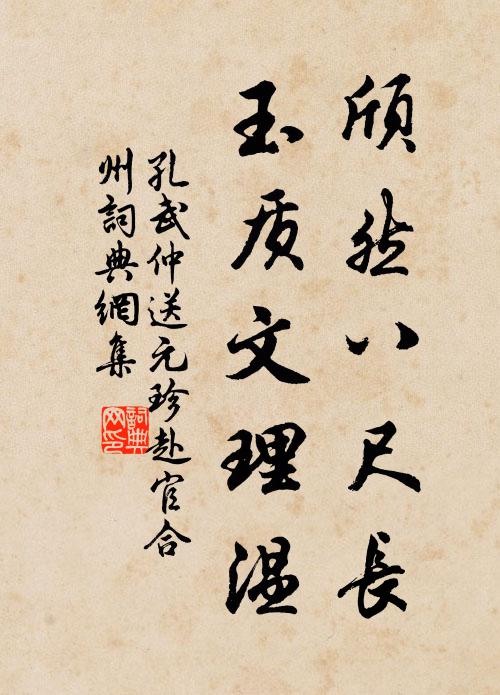 頎然八尺長
玉质文理温
孔武仲送元珍赴官合
州詞典網集
詞典网印